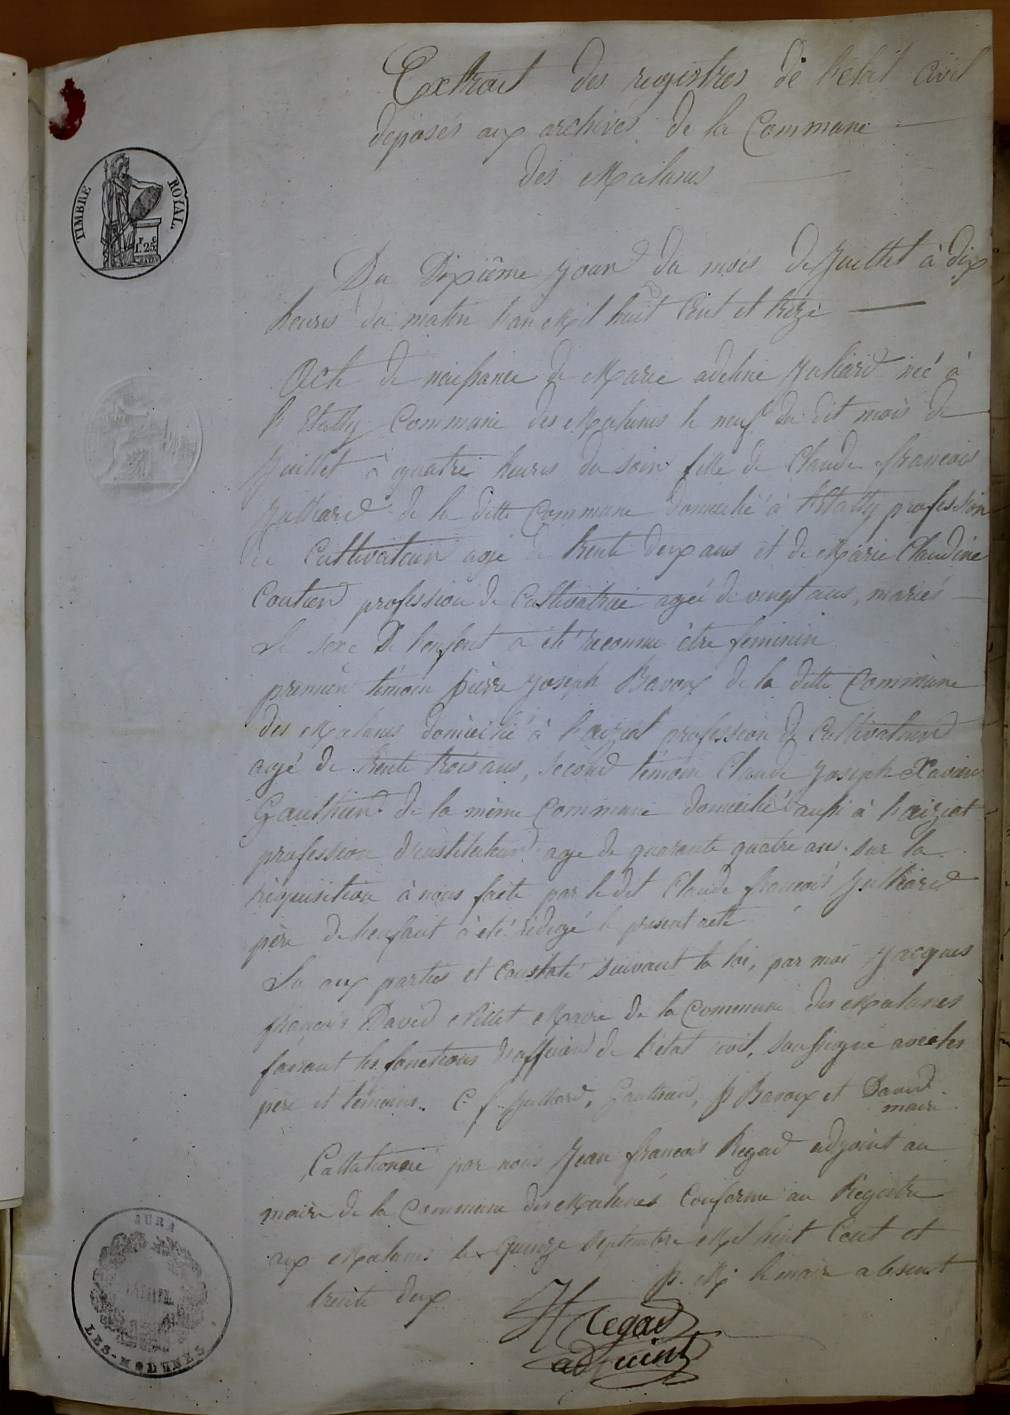 Extrait des registres de l'état civil
déposés aux archives de la Commune
des Molunes
TIMBRE ROYAL.
Du Dixième jour du mois de Juillet à dix
heures du matin l'an Mil huit Cent et treize
Acte de naissance de Marie adeline Julliard né à
Commune des Molunes le neuf du dit mois de
Juillet à quatre heures du soir fille de Claude françois
Julliard de la ditte Commune domicilié à profession
de Cultivateur agé de trente deux ans et de Marie Claudine
profession de Cultivatrice agée de vingt ans, mariés
Le sexe De l'enfant a été reconnu être feminin
premier témoin pierre Joseph Bavoux de la ditte Commune
des Molunes domicilié à profession de Cultivateur
agé de trente trois ans, Second témoin Claude Joseph Xavier
Gauthier de la même Commune domicilié aussi à
profession d'instituteur age de quarante quatre ans. sur la
réquisition à nous faite par le dit Claude francois Julliard
père de l'enfant à été rédigé le present acte
Lu aux parties et Constaté suivant la loi, par moi Jacques
françois David Maire de la Commune des Molunes
faisant les fonctions d'officier de l'état civil, soussigné avec les
père et témoins. C f. Julliard, Gauthier, p Bavoux et David
maire.
Collationné par nous Jean francois Regad adjoint au
maire de la Commune des Molunes Conforme au Registre
aux Molunes le quinze Septembre Mil huit Cent et
trente deux.
p. le maire absent
Regad
adjoint
JURA
MAIRIE
LES-MOLUNES